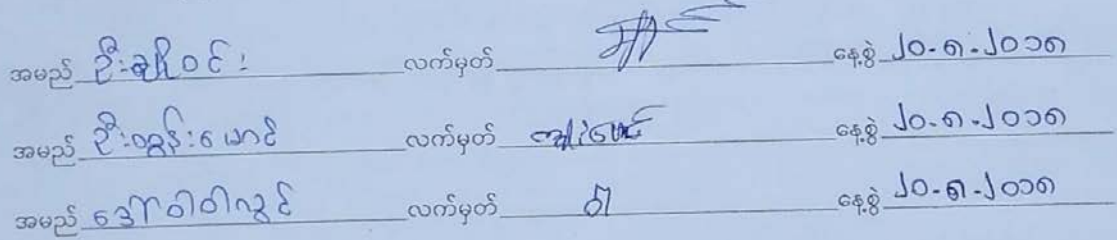 အမည် ဦးချိုဝင်း လက်မှတ် နေ့စွဲ ၂၀-၈-၂၀၁၈
အမည် ဦးထွန်းမောင် လက်မှတ် နေ့စွဲ ၂၀-၈-၂၀၁၈
အမည် ဒေါ်ဝါဝါလွင် လက်မှတ် ဝါ နေ့စွဲ ၂၀-၈-၂၀၁၈